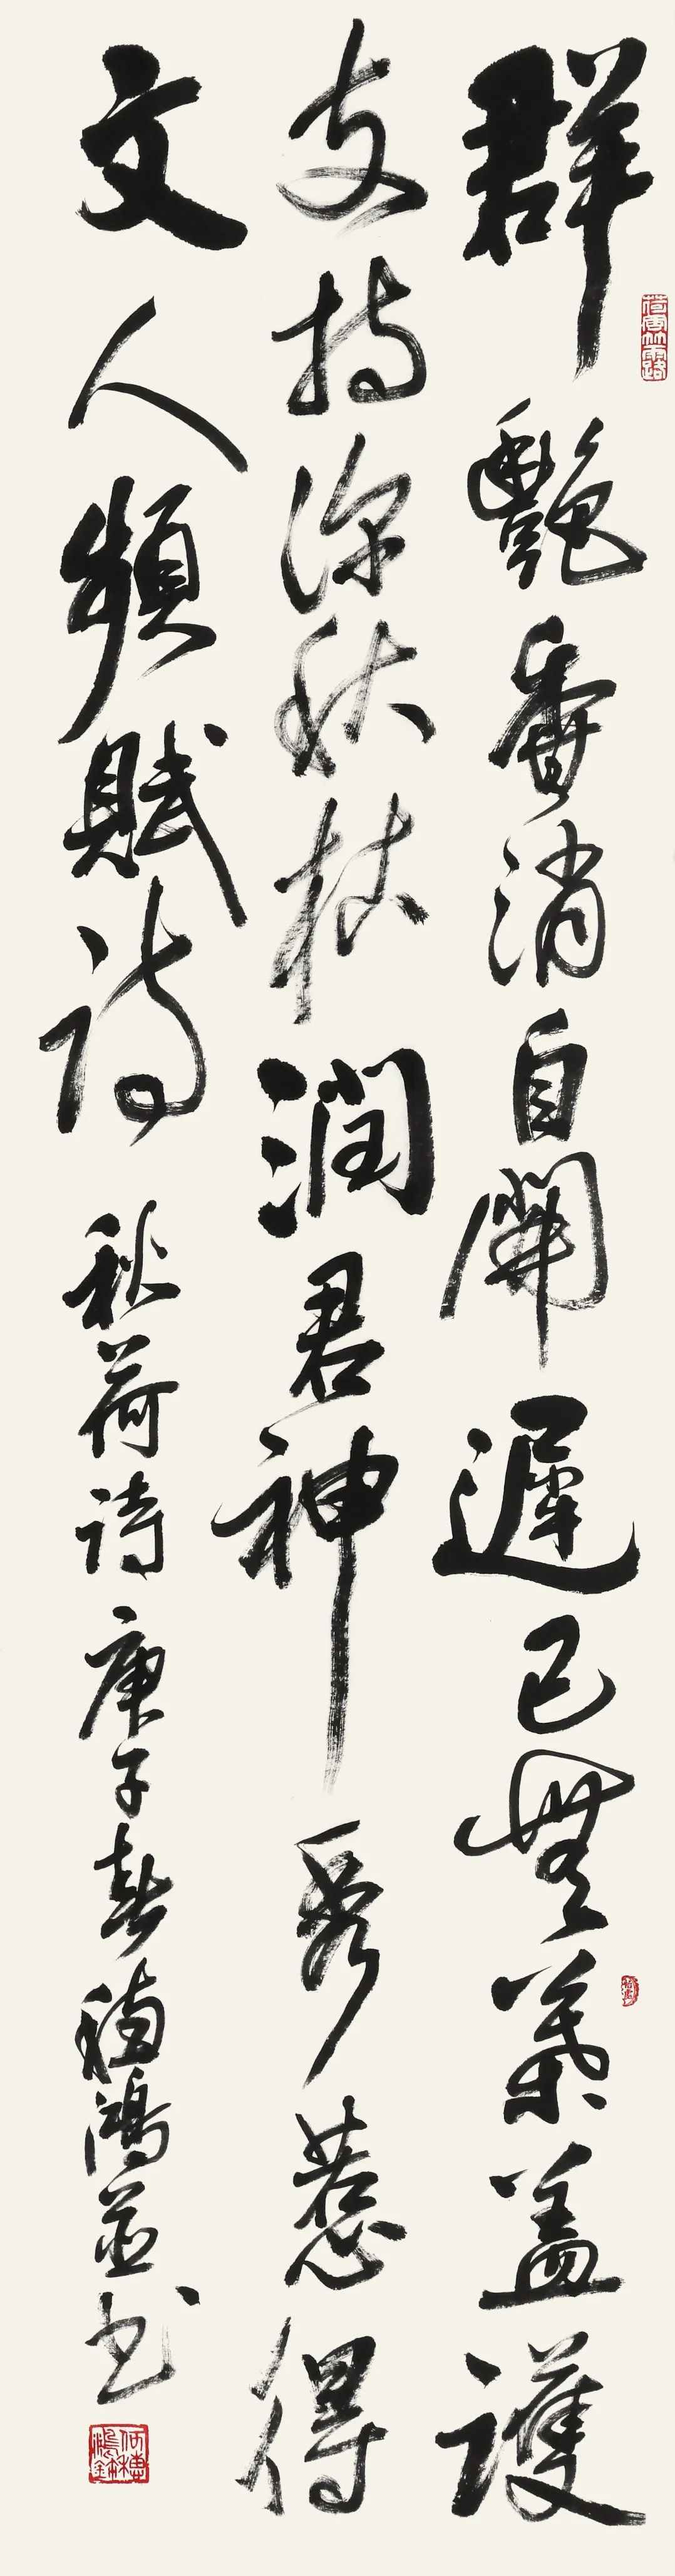 群艷香消自開遲已無葉蓋護
支持深秋枝潤君神秀惹得
文人頻賦詩 秋荷詩 庚子春穗鴻並書